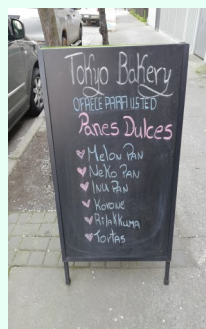 Tokyo Bakery
OFRECE PARA USTED
Panes Dulces
Melon Pan
Neko Pan
Inu Pan
Korone
Rilakkuma
Tortas